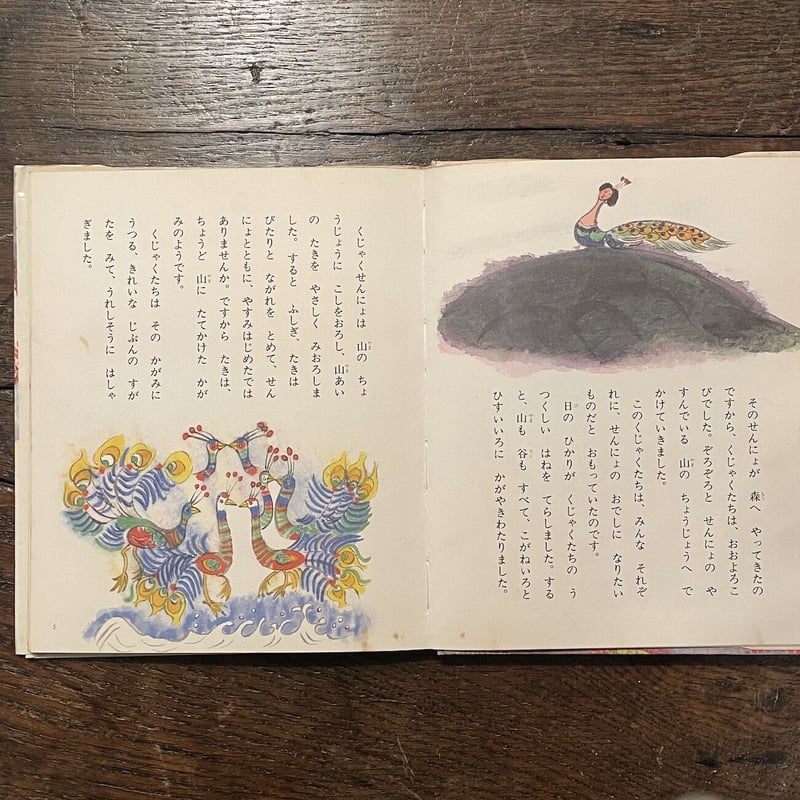 そのせんにょが　森へ　やってきたの
ですから、くじゃくたちは、おおよろこ
びでした。ぞろぞろと　せんにょの　や
すんでいる　山の　ちょうじょうへ　で
かけていきました。
このくじゃくたちは、みんな　それぞ
れに、せんにょの　おでしに　なりたい
ものだと　おもっていたのです。
日の　ひかりが　くじゃくたちの　う
つくしい　はねを　てらしました。する
と、山も　谷も　すべて、こがねいろと
ひすいいろに　かがやきわたりました。
くじゃくせんにょは　山の　ちょ
うじょうに　こしをおろし、山あい
の　たきを　やさしく　みおろしま
した。すると　ふしぎ、たきは
ぴたりと　ながれを　とめて、せん
にょとともに、やすみはじめたでは
ありませんか。ですから　たきは、
ちょうど　山に　たてかけた　かが
みのようです。
くじゃくたちは　その　かがみに
うつる、きれいな　じぶんの　すが
たを　みて、うれしそうに　はしゃ
ぎました。
5